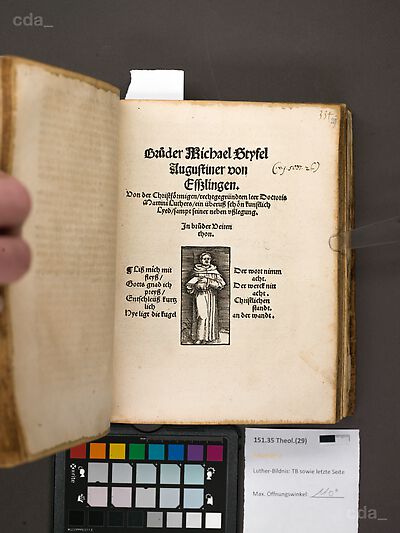 cda_
Brüder Michael Styfel
Augustiner von
Eſszlingen.
Von der Chriſtförmigen/ rechtgegründten leer Doctoris
Martini Luthers/ ein überuß ſchön kunſtlich
Lyed/ ſampt ſeiner neben vßlegung.
In brüder Veiten
thon.
¶ Liß mich mit
fleyß/
Gotts gnad ich
preyß/
Entſchleüß kurtz
lich
Hye ligt die kugel
Der wort nimm
acht.
Der werck nitt
acht.
Chriſtlichen
ſtandt.
an der wandt.
151.35 Theol.(29)
Luther-Bildnis: TB sowie letzte Seite
Max. Öffnungswinkel: 110°
cda_